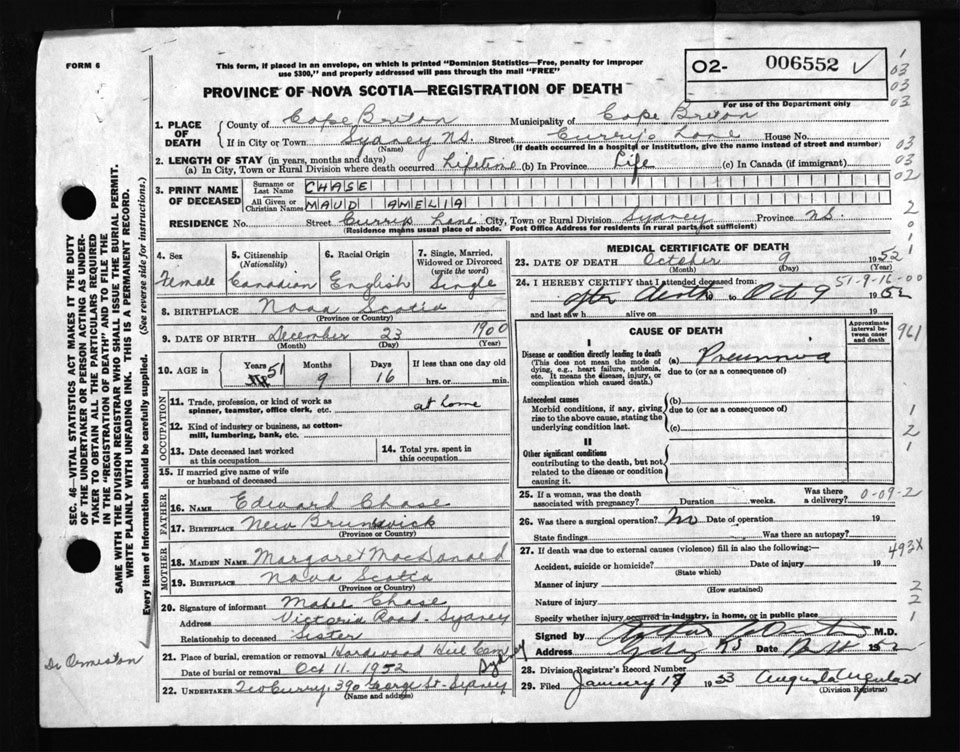 FORM 6
This form, if placed in an envelope, on which is printed "Dominion Statistics—Free, penalty for improper
use $300," and properly addressed will pass through the mail "FREE"
O2- 006552 ✓
For use of the Department only
PROVINCE OF NOVA SCOTIA—REGISTRATION OF DEATH
1. PLACE OF DEATH
County of Cape Breton Municipality of Cape Breton
If in City or Town Sydney N.S. Street Currys Lane House No.
(Name) (If death occurred in a hospital or institution, give the name instead of street and number)
2. LENGTH OF STAY (in years, months and days)
(a) In City, Town or Rural Division where death occurred Lifetime (b) In Province Life (c) In Canada (if immigrant)
3. PRINT NAME OF DECEASED
Surname or Last Name CHASE
All Given or Christian Names MAUD AMELIA
RESIDENCE No. Street Currys Lane City, Town or Rural Division Sydney Province N.S.
(Residence means usual place of abode. Post Office Address for residents in rural parts not sufficient)
4. Sex Female
5. Citizenship (Nationality) Canadian
6. Racial Origin English
7. Single, Married, Widowed or Divorced (write the word) Single
8. BIRTHPLACE Nova Scotia
(Province or Country)
9. DATE OF BIRTH December 23 1900
(Month) (Day) (Year)
10. AGE in Years 51 Months 9 Days 16 If less than one day old hrs. or min.
OCCUPATION
11. Trade, profession, or kind of work as spinner, teamster, office clerk, etc. at home
12. Kind of industry or business, as cotton-mill, lumbering, bank, etc.
13. Date deceased last worked at this occupation
14. Total yrs. spent in this occupation
15. If married give name of wife or husband of deceased
FATHER
16. Name Edward Chase
17. Birthplace New Brunswick
(Province or Country)
MOTHER
18. Maiden Name Margaret MacDonald
19. Birthplace Nova Scotia
(Province or Country)
20. Signature of informant Mabel Chase
Address Victoria Road - Sydney
Relationship to deceased Sister
21. Place of burial, cremation or removal Hardwood Hill Cem Sydney
Date of burial or removal Oct 11. 1952
22. UNDERTAKER Curry, 390 George St - Sydney
(Name and address)
MEDICAL CERTIFICATE OF DEATH
23. DATE OF DEATH October 9 1952
(Month) (Day) (Year)
51-9-16-00
24. I HEREBY CERTIFY that I attended deceased from:
after death to Oct 9 1952
and last saw h alive on
CAUSE OF DEATH
Approximate interval between onset and death
I
Disease or condition directly leading to death
(This does not mean the mode of dying, e.g., heart failure, asthenia, etc. It means the disease, injury, or complication which caused death.)
(a) Pneumonia
due to (or as a consequence of)
Antecedent causes
Morbid conditions, if any, giving rise to the above cause, stating the underlying condition last.
(b)
due to (or as a consequence of)
(c)
II
Other significant conditions
contributing to the death, but not related to the disease or condition causing it.
25. If a woman, was the death associated with pregnancy? Duration weeks. Was there a delivery? 0-09-2
26. Was there a surgical operation? No Date of operation 19
State findings Was there an autopsy?
27. If death was due to external causes (violence) fill in also the following:—
Accident, suicide or homicide? Date of injury 19
(State which)
Manner of injury
(How sustained)
Nature of injury
Specify whether injury occurred in industry, in home, or in public place
Signed by M.D.
Address Date 1952
28. Division Registrar's Record Number
29. Filed January 17 1953
(Division Registrar)
SEC. 46—VITAL STATISTICS ACT MAKES IT THE DUTY
OF THE UNDERTAKER OR PERSON ACTING AS UNDER-
TAKER TO OBTAIN ALL THE PARTICULARS REQUIRED
IN THE "REGISTRATION OF DEATH" AND TO FILE THE
SAME WITH THE DIVISION REGISTRAR WHO SHALL ISSUE THE BURIAL PERMIT.
WRITE PLAINLY WITH UNFADING INK. THIS IS A PERMANENT RECORD.
Every item of Information should be carefully supplied. (See reverse side for instructions.)
Dr Ormiston
1
03
03
03
03
03
02
2
0
1
1
961
1
2
1
493X
2
2
1